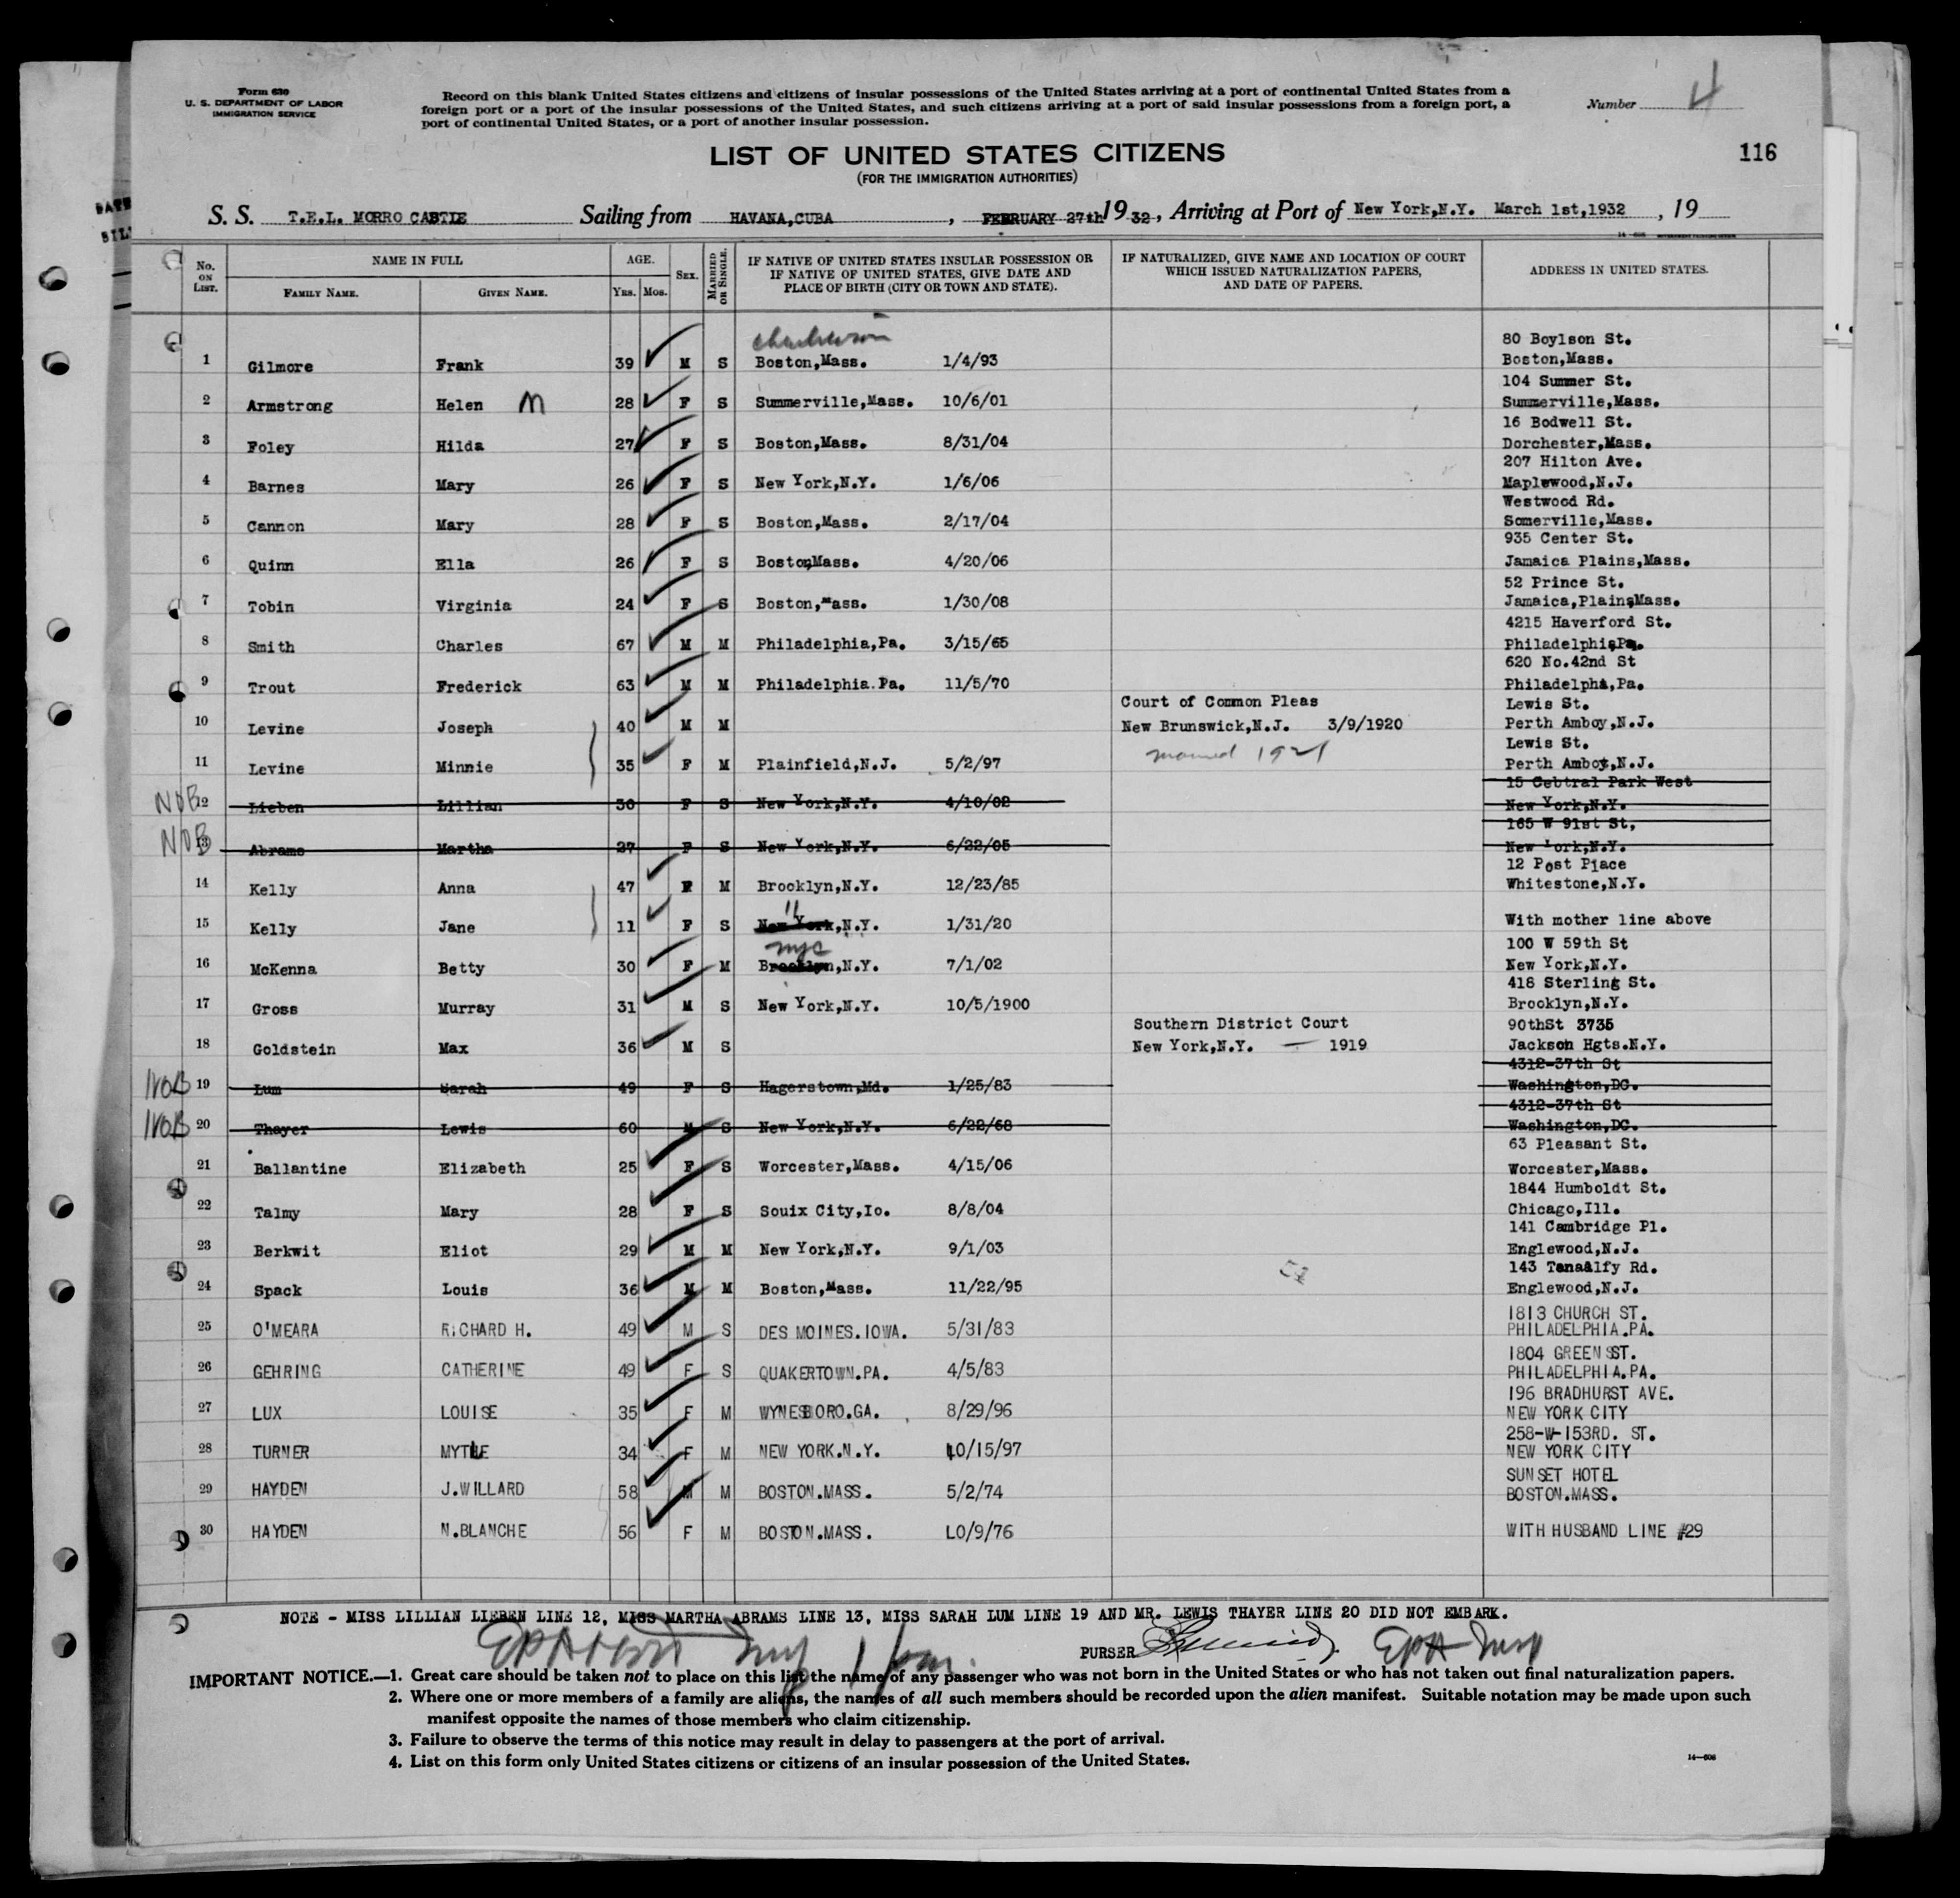 Form 630
U. S. DEPARTMENT OF LABOR
IMMIGRATION SERVICE
Record on this blank United States citizens and citizens of insular possessions of the United States arriving at a port of continental United States from a
foreign port or a port of the insular possessions of the United States, and such citizens arriving at a port of said insular possessions from a foreign port, a
port of continental United States, or a port of another insular possession.
Number 4
116
LIST OF UNITED STATES CITIZENS
(FOR THE IMMIGRATION AUTHORITIES)
S. S. T.E.L. MORRO CASTLE Sailing from HAVANA,CUBA , FEBRUARY 27th 19 32 , Arriving at Port of New York,N.Y. March 1st,1932 , 19
No. ON LIST. NAME IN FULL AGE. SEX. MARRIED OR SINGLE. IF NATIVE OF UNITED STATES INSULAR POSSESSION OR IF NATIVE OF UNITED STATES, GIVE DATE AND PLACE OF BIRTH (CITY OR TOWN AND STATE). IF NATURALIZED, GIVE NAME AND LOCATION OF COURT WHICH ISSUED NATURALIZATION PAPERS, AND DATE OF PAPERS. ADDRESS IN UNITED STATES.
FAMILY NAME. GIVEN NAME. YRS. MOS.
80 Boylson St.
1 Gilmore Frank 39 M S Boston,Mass. 1/4/93 Boston,Mass.
104 Summer St.
2 Armstrong Helen M 28 F S Summerville,Mass. 10/6/01 Summerville,Mass.
16 Bodwell St.
3 Foley Hilda 27 F S Boston,Mass. 8/31/04 Dorchester,Mass.
207 Hilton Ave.
4 Barnes Mary 26 F S New York,N.Y. 1/6/06 Maplewood,N.J.
Westwood Rd.
5 Cannon Mary 28 F S Boston,Mass. 2/17/04 Somerville,Mass.
935 Center St.
6 Quinn Ella 26 F S Boston,Mass. 4/20/06 Jamaica Plains,Mass.
52 Prince St.
7 Tobin Virginia 24 F S Boston,Mass. 1/30/08 Jamaica,Plains,Mass.
4215 Haverford St.
8 Smith Charles 67 M M Philadelphia,Pa. 3/15/65 Philadelphia,Pa.
620 No.42nd St
9 Trout Frederick 63 M M Philadelphia.Pa. 11/5/70 Philadelpha,Pa.
Court of Common Pleas Lewis St.
10 Levine Joseph 40 M M New Brunswick,N.J. 3/9/1920 Perth Amboy,N.J.
married 1921 Lewis St.
11 Levine Minnie 35 F M Plainfield,N.J. 5/2/97 Perth Amboy,N.J.
15 Cebtral Park West
NOB 12 Lieben Lillian 30 F S New York,N.Y. 4/10/02 New York,N.Y.
165 W 91st St,
NOB 13 Abrams Martha 27 F S New York,N.Y. 6/22/05 New York,N.Y.
12 Post Place
14 Kelly Anna 47 F M Brooklyn,N.Y. 12/23/85 Whitestone,N.Y.
"
15 Kelly Jane 11 F S New York,N.Y. 1/31/20 With mother line above
nyc 100 W 59th St
16 McKenna Betty 30 F M Brooklyn,N.Y. 7/1/02 New York,N.Y.
418 Sterling St.
17 Gross Murray 31 M S New York,N.Y. 10/5/1900 Brooklyn,N.Y.
Southern District Court 90thSt 3735
18 Goldstein Max 36 M S New York,N.Y. — 1919 Jackson Hgts.N.Y.
4312-37th St
NOB 19 Lum Sarah 49 F S Hagerstown,Md. 1/25/83 Washington,DC.
4312-37th St
NOB 20 Thayer Lewis 60 M S New York,N.Y. 6/22/68 Washington,DC.
63 Pleasant St.
21 Ballantine Elizabeth 25 F S Worcester,Mass. 4/15/06 Worcester,Mass.
1844 Humboldt St.
22 Talmy Mary 28 F S Souix City,Io. 8/8/04 Chicago,Ill.
141 Cambridge Pl.
23 Berkwit Eliot 29 M M New York,N.Y. 9/1/03 Englewood,N.J.
143 Tenaalfy Rd.
24 Spack Louis 36 M M Boston,Mass. 11/22/95 Englewood,N.J.
1813 CHURCH ST.
25 O'MEARA RICHARD H. 49 M S DES MOINES.IOWA. 5/31/83 PHILADELPHIA.PA.
1804 GREEN SST.
26 GEHRING CATHERINE 49 F S QUAKERTOWN.PA. 4/5/83 PHILADELPHIA.PA.
196 BRADHURST AVE.
27 LUX LOUISE 35 F M WYNESBORO.GA. 8/29/96 NEW YORK CITY
258-W-153RD. ST.
28 TURNER MYTLE 34 F M NEW YORK.N.Y. 10/15/97 NEW YORK CITY
SUNSET HOTEL
29 HAYDEN J.WILLARD 58 M M BOSTON.MASS. 5/2/74 BOSTON.MASS.
30 HAYDEN N.BLANCHE 56 F M BOSTON.MASS. L0/9/76 WITH HUSBAND LINE #29
NOTE - MISS LILLIAN LIEBEN LINE 12, MISS MARTHA ABRAMS LINE 13, MISS SARAH LUM LINE 19 AND MR. LEWIS THAYER LINE 20 DID NOT EMBARK.
PURSER
IMPORTANT NOTICE.—1. Great care should be taken not to place on this list the name of any passenger who was not born in the United States or who has not taken out final naturalization papers.
2. Where one or more members of a family are aliens, the names of all such members should be recorded upon the alien manifest. Suitable notation may be made upon such
manifest opposite the names of those members who claim citizenship.
3. Failure to observe the terms of this notice may result in delay to passengers at the port of arrival.
4. List on this form only United States citizens or citizens of an insular possession of the United States.
14—608